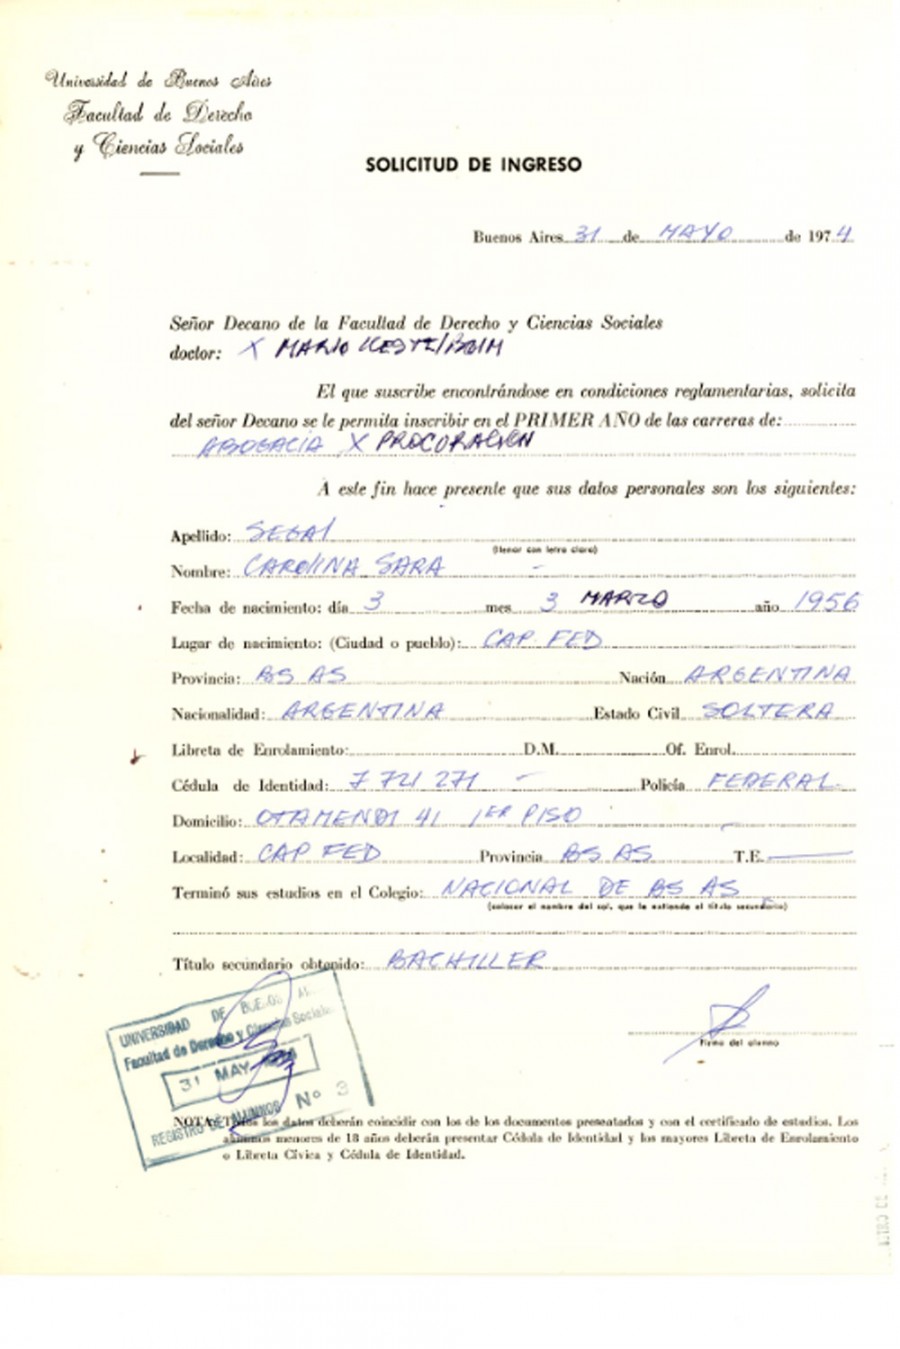 Universidad de Buenos Aires
Facultad de Derecho
y Ciencias Sociales
SOLICITUD DE INGRESO
Buenos Aires 31 de MAYO de 1974
Señor Decano de la Facultad de Derecho y Ciencias Sociales
doctor: X MARIO KESTELBOIM
El que suscribe encontrándose en condiciones reglamentarias, solicita
del señor Decano se le permita inscribir en el PRIMER AÑO de las carreras de:
ABOGACIA X PROCURACION
A este fin hace presente que sus datos personales son los siguientes:
Apellido: SEGAl
(llenar con letra clara)
Nombre: CAROlINA SARA -
Fecha de nacimiento: día 3 mes 3 MARZO año 1956
Lugar de nacimiento: (Ciudad o pueblo): CAP FED
Provincia: BS AS Nación ARGENTINA
Nacionalidad: ARGENTINA Estado Civil SOLTERA
Libreta de Enrolamiento: D.M. Of. Enrol.
Cédula de Identidad: 7 721 271 - Policía FEDERAL
Domicilio: OTAMENDI 41 1ER PISO
Localidad: CAP FED Provincia BS AS T.E.
Terminó sus estudios en el Colegio: NACIONAL DE BS AS
(colocar el nombre del col. que le extiende el título secundario)
Título secundario obtenido: BACHILLER
Firma del alumno
UNIVERSIDAD DE BUENOS
Facultad de Derecho y Ciencias Sociales
31 MAY
REGISTRO DE ALUMNOS Nº 3
NOTA: Todos los datos deberán coincidir con los de los documentos presentados y con el certificado de estudios. Los
alumnos menores de 18 años deberán presentar Cédula de Identidad y los mayores Libreta de Enrolamiento
o Libreta Cívica y Cédula de Identidad.